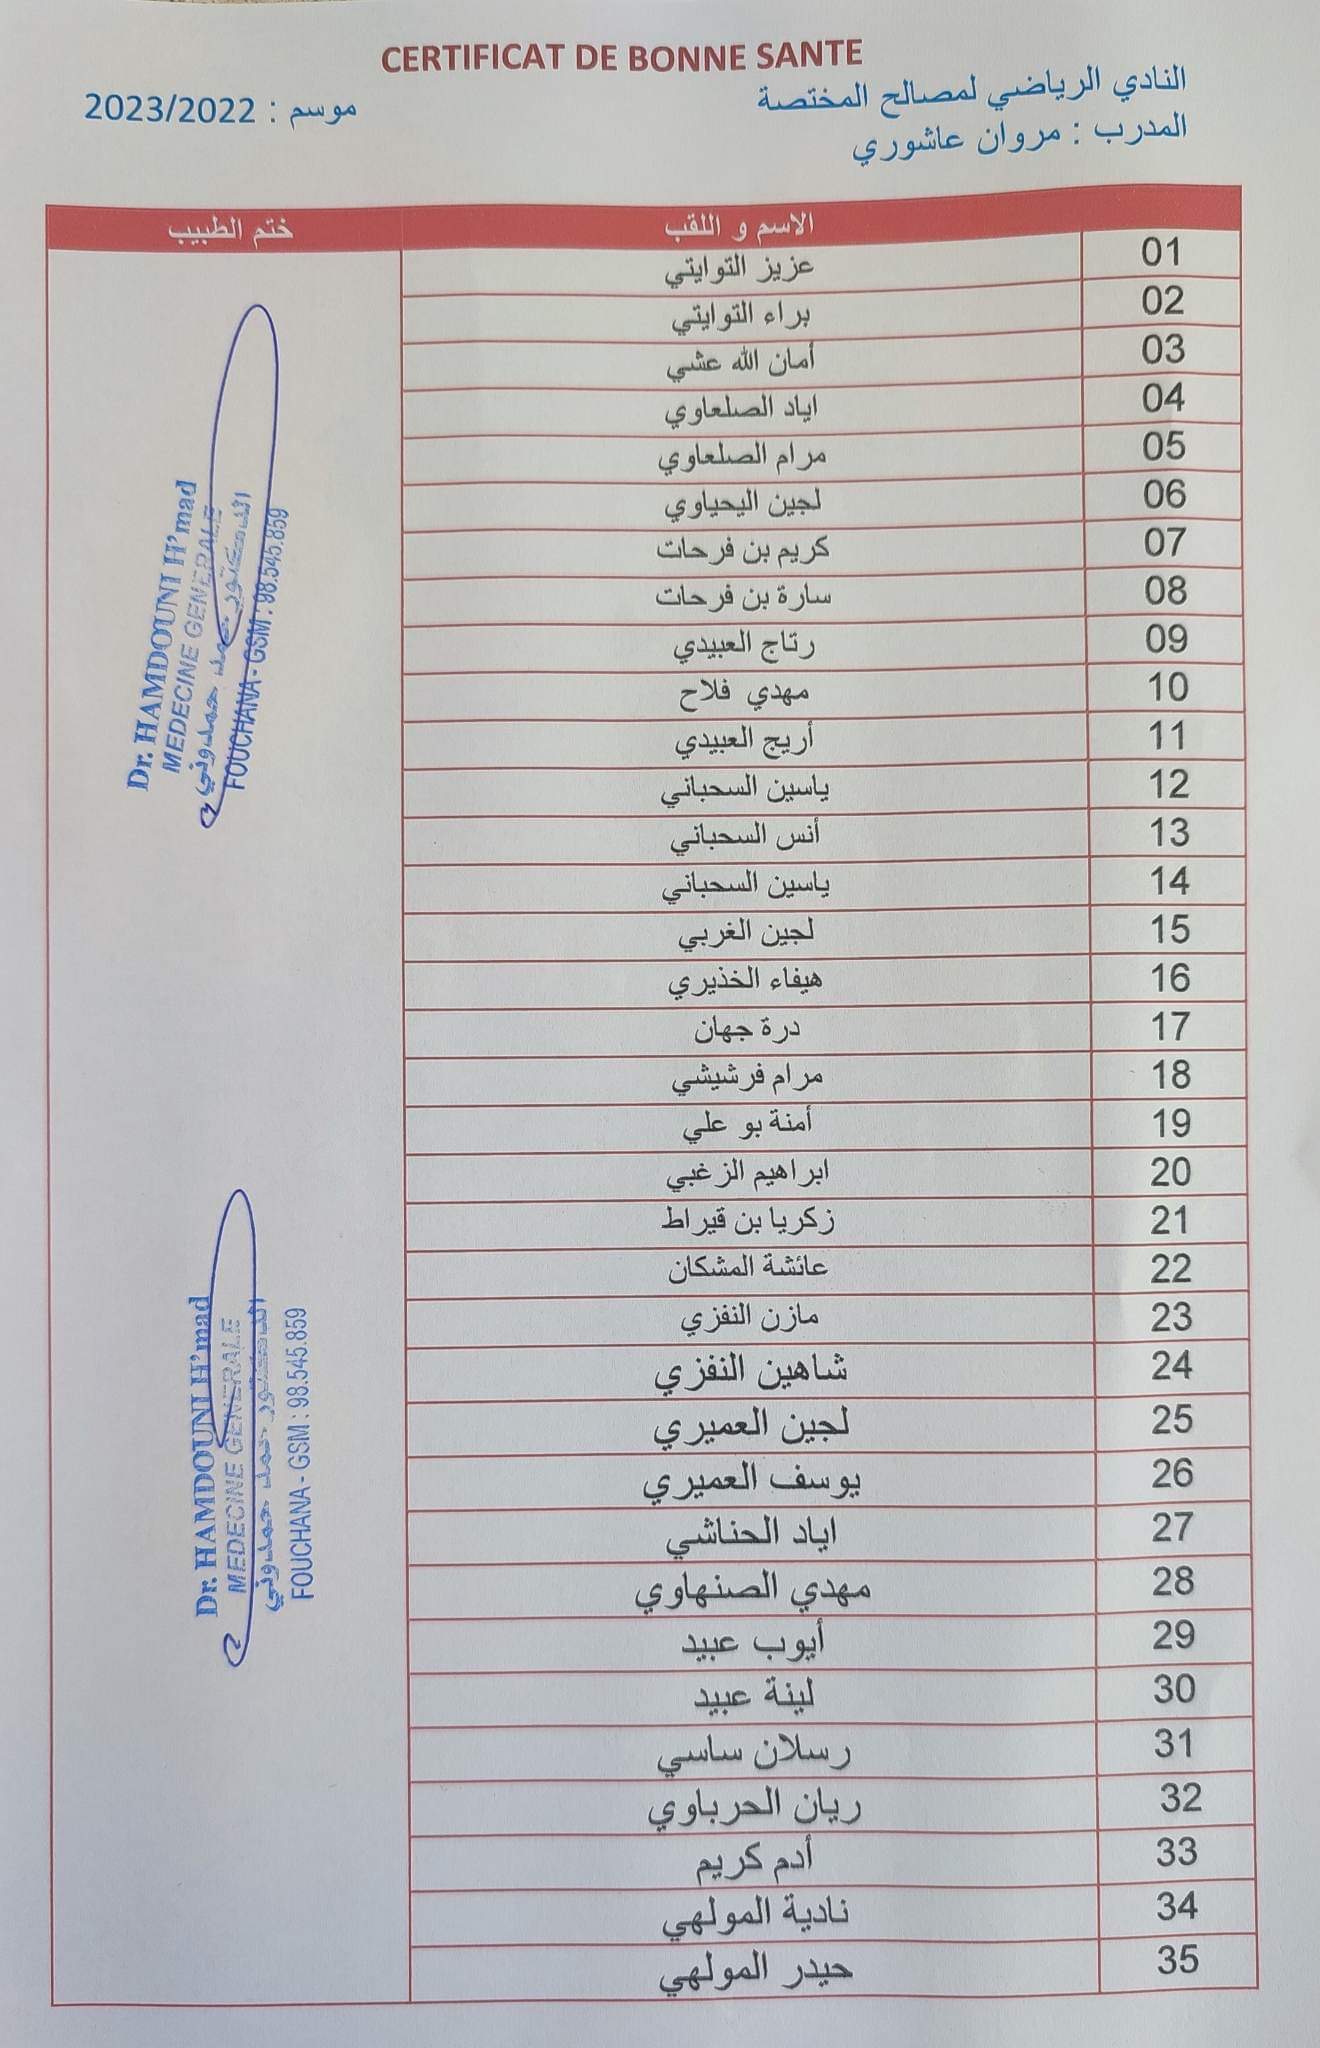 CERTIFICAT DE BONNE SANTE
النادي الرياضي لمصالح المختصة
موسم : 2023/2022
المدرب : مروان عاشوري
الاسم و اللقب ختم الطبيب
01 عزيز التوايتي
02 براء التوايتي
03 أمان الله عشي
04 اياد الصلعاوي
05 مرام الصلعاوي
06 لجين اليحياوي
07 كريم بن فرحات
08 سارة بن فرحات
09 رتاج العبيدي
10 مهدي فلاح
11 أريج العبيدي
12 ياسين السحباني
13 أنس السحباني
14 ياسين السحباني
15 لجين الغربي
16 هيفاء الخذيري
17 درة جهان
18 مرام فرشيشي
19 أمنة بو علي
20 ابراهيم الزغبي
21 زكريا بن قيراط
22 عائشة المشكان
23 مازن النفزي
24 شاهين النفزي
25 لجين العميري
26 يوسف العميري
27 اياد الحناشي
28 مهدي الصنهاوي
29 أيوب عبيد
30 لينة عبيد
31 رسلان ساسي
32 ريان الحرباوي
33 أدم كريم
34 نادية المولهي
35 حيدر المولهي
Dr. HAMDOUNI H'mad
MEDECINE GENERALE
الدكتور حمد حمدوني
FOUCHANA - GSM : 98.545.859
Dr. HAMDOUNI H'mad
MEDECINE GENERALE
الدكتور حمد حمدوني
FOUCHANA - GSM : 98.545.859